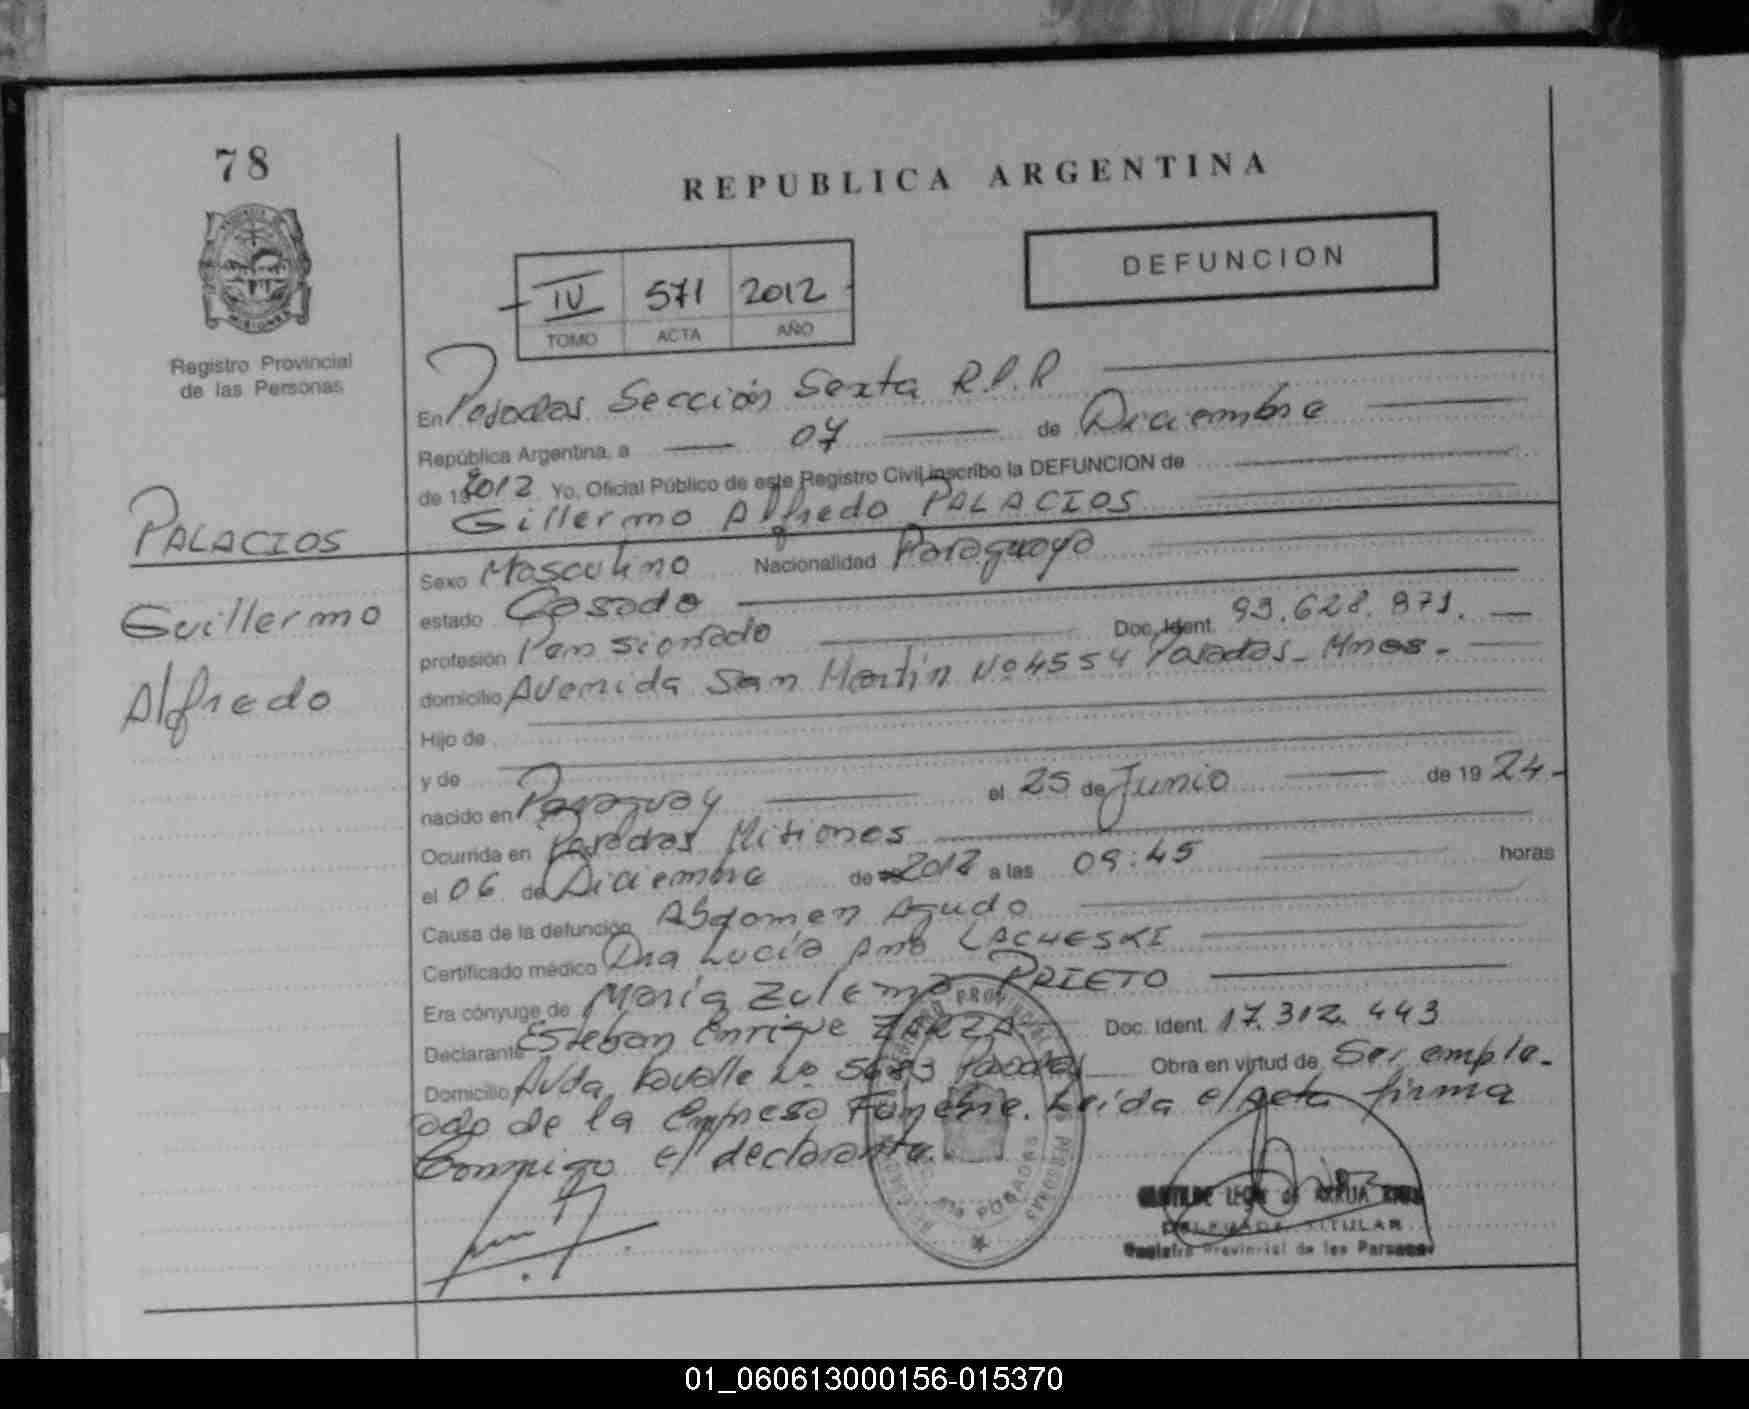 78
REPUBLICA ARGENTINA
DEFUNCION
IV 571 2012
TOMO ACTA AÑO
Registro Provincial
de las Personas
En Posadas Sección Sexta R.P.P
República Argentina, a 07 de Diciembre
de 19 2012 Yo, Oficial Público de este Registro Civil inscribo la DEFUNCION de
Gillermo Alfredo PALACIOS
PALACIOS
Guillermo
Alfredo
Sexo Masculino Nacionalidad Paraguaya
estado Casado
profesión Pensionado Doc. Ident. 93.628.871.
domicilio Avenida San Martín Nº 4554 Posadas - Mnes -
Hijo de
y de
nacido en Paraguay el 25 de Junio de 19 24.-
Ocurrida en Posadas Misiones
el 06 de Diciembre de 2012 a las 09:45 horas
Causa de la defunción Abdomen Agudo
Certificado médico Dra Lucía Ana LACHESKI
Era cónyuge de María Zulema PRIETO
Declarante Esteban Enrique ZARZA Doc. Ident. 17.312.443
Domicilio Avda. Lavalle Nº 5683 Posadas Obra en virtud de Ser emple-
ado de la Empresa Fúnebre. Leída el acta firma
Conmigo el declarante.
REGISTRO PROVINCIAL DE LAS PERSONAS
POSADAS
DELEGADA TITULAR
Registro Provincial de las Personas
01_060613000156-015370